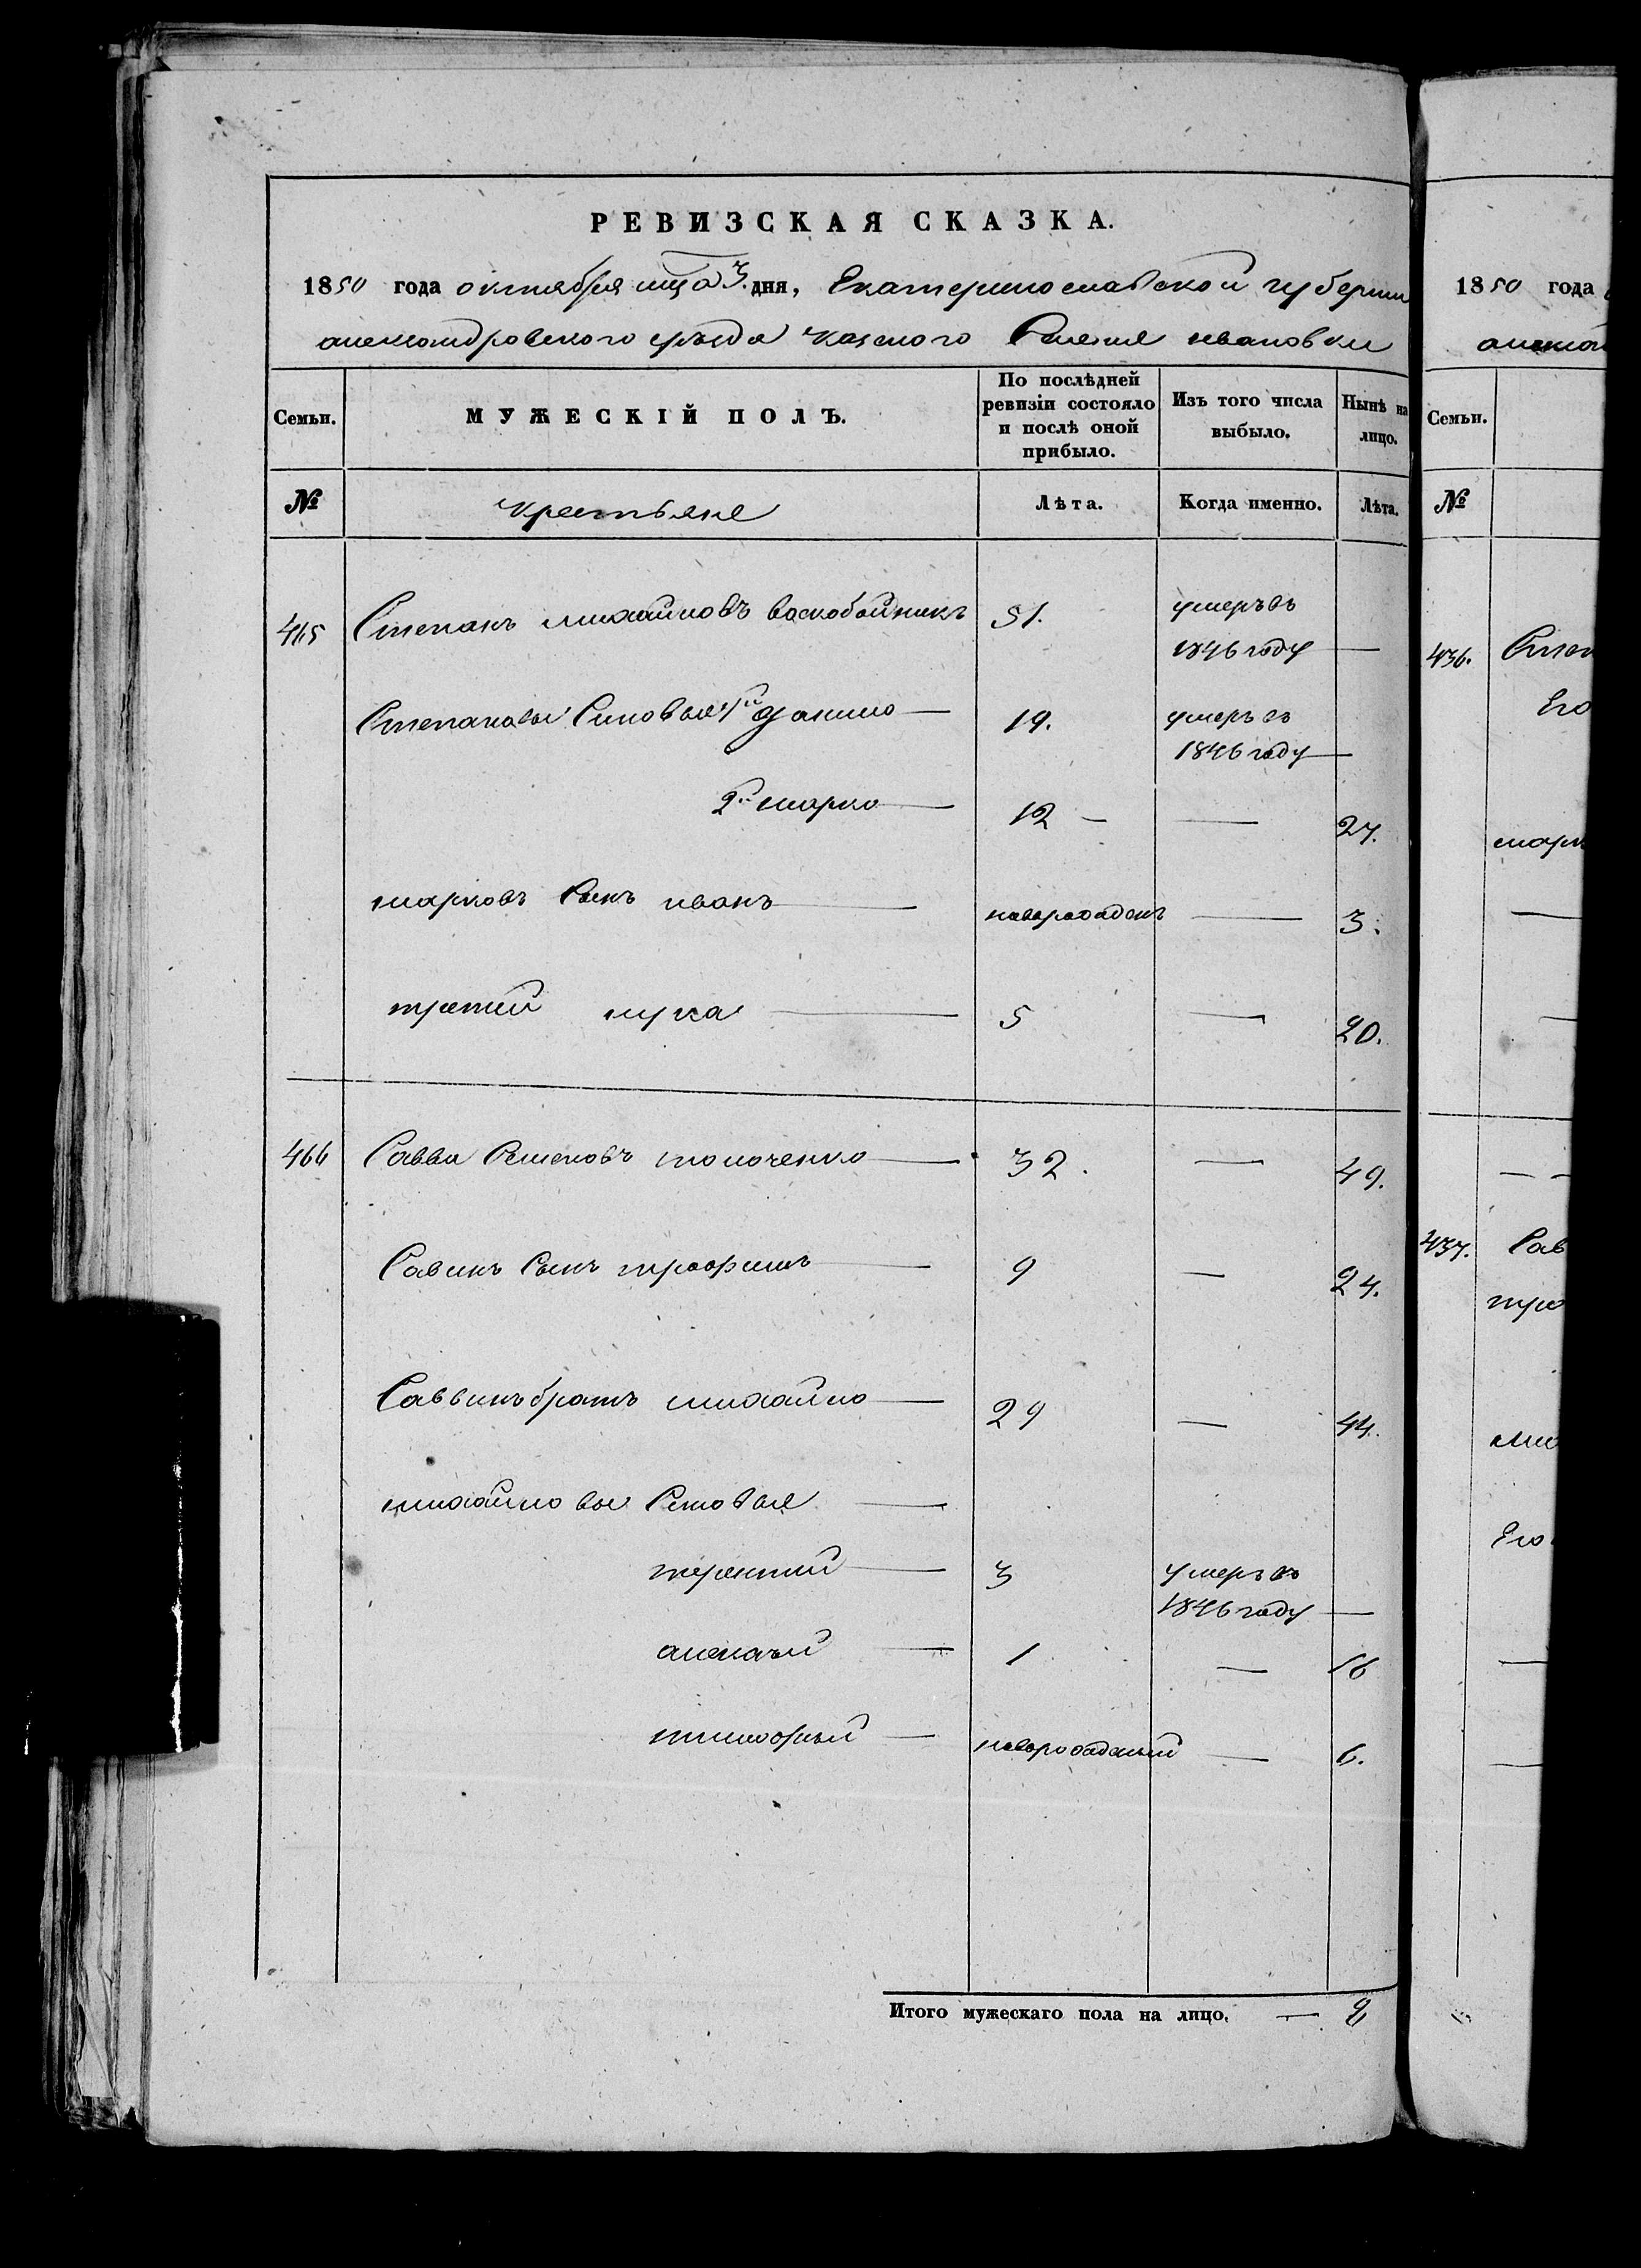 РЕВИЗСКАЯ СКАЗКА.
1850 года октября мца 3 дня, Екатеринославской губернии
александровского уезда казеного Селения ивановки
Семьи.
МУЖЕСКІЙ ПОЛЪ.
По послѣдней ревизіи состояло и послѣ оной прибыло.
Изъ того числа выбыло.
Нынѣ на лицо.
№
крестьяне
Лѣта.
Когда именно.
Лѣта.
465 Степанъ михайловъ воскобойникъ 51. умеръ въ
1846 году —
Степановы Синовья 1й данило — 19. умеръ въ
1846 году —
2й марко — 12 — — 27.
марковъ Сынъ иванъ — новорожденъ — 3.
третий лука — 5 — 20.
466 Савва Семеновъ толоченко — 32. — 49.
Савинъ Сынъ трофимъ — 9 — 24.
Саввинъ братъ михайло — 29 — 44.
михайловы Синовья —
терентий — 3 умеръ въ
1846 году —
алексѣй — 1 — 16
тимофей — новорожденый — 6.
Итого мужескаго пола на лицо. — 8
1850 года
Семьи.
№
436.
Его
437. Сав
тро
Его